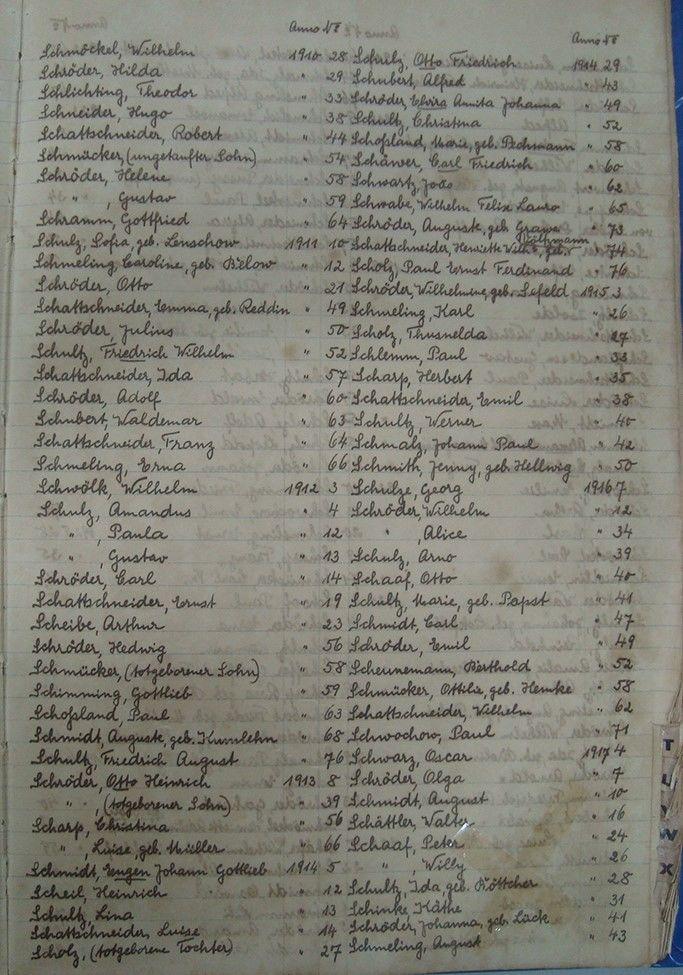 Anno №
Schmöckel, Wilhelm 1910 28
Schröder, Hilda " 29
Schlichting, Theodor " 33
Schneider, Hugo " 38
Schattschneider, Robert " 44
Schmücker, (ungetaufter Sohn) " 54
Schröder, Helene " 58
" , Gustav " 59
Schramm, Gottfried " 64
Schulz, Sofia, geb. Lenschow 1911 10
Schmeling, Caroline, geb. Bülow " 12
Schröder, Otto " 21
Schattschneider, Emma, geb. Reddin " 49
Schröder, Julius " 50
Schultz, Friedrich Wilhelm " 52
Schattschneider, Ida " 57
Schröder, Adolf " 60
Schubert, Waldemar " 63
Schattschneider, Franz " 64
Schmeling, Erna " 66
Schwölk, Wilhelm 1912 3
Schulz, Amandus " 4
" , Paula " 12
" , Gustav " 13
Schröder, Carl " 14
Schattschneider, Ernst " 19
Scheibe, Arthur " 23
Schröder, Hedwig " 56
Schmücker, (totgeborener Sohn) " 58
Schimming, Gottlieb " 59
Schoßland, Paul " 63
Schmidt, Auguste, geb. Kumlehn " 68
Schultz, Friedrich August " 76
Schröder, Otto Heinrich 1913 8
" , (totgeborener Sohn) " 39
Scharp, Christina " 56
" , Luise, geb. Müller " 66
Schmidt, Eugen Johann Gottlieb 1914 5
Scheil, Heinrich " 12
Schultz, Lina " 13
Schattschneider, Luise " 14
Scholz, (totgeborene Tochter) " 27
Anno №
Schulz, Otto Friedrich 1914 29
Schubert, Alfred " 43
Schröder, Elvira Annita Johanna " 49
Schultz, Christina " 52
Schoßland, Marie, geb. Pechmann " 58
Schäwer, Carl Friedrich " 60
Schwartz, " 62
Schwabe, Wilhelm Felix Lauro " 65
Schröder, Auguste, geb. Grawe " 73
Schattschneider, Henriette Wilh., geb. Voltzmann " 74
Scholz, Paul Ernst Ferdinand " 76
Schröder, Wilhelmine, geb. Lefeld 1915 3
Schmeling, Karl " 26
Scholz, Thusnelda " 27
Schlemm, Paul " 33
Scharp, Herbert " 35
Schattschneider, Emil " 38
Schultz, Werner " 40
Schmalz, Johann Paul " 42
Schmith, Jenny, geb. Hellwig " 50
Schulze, Georg 1916 7
Schröder, Wilhelm " 12
" , Alice " 34
Schulz, Arno " 39
Schaaf, Otto " 40
Schultz, Marie, geb. Papst " 41
Schmidt, Carl " 47
Schröder, Emil " 49
Scheunemann, Berthold " 52
Schmücker, Ottilie, geb. Hemke " 58
Schattschneider, Wilhelm " 62
Schwochow, Paul " 71
Schwarz, Oscar 1917 4
Schröder, Olga " 7
Schmidt, August " 10
Schättler, Walter " 16
Schaaf, Peter " 24
" , Willy " 26
Schultz, Ida, geb. Böttcher " 28
Schinke, Käthe " 31
Schröder, Johanna, geb. Lück " 41
Schmeling, August " 43
T
U
V
W
X